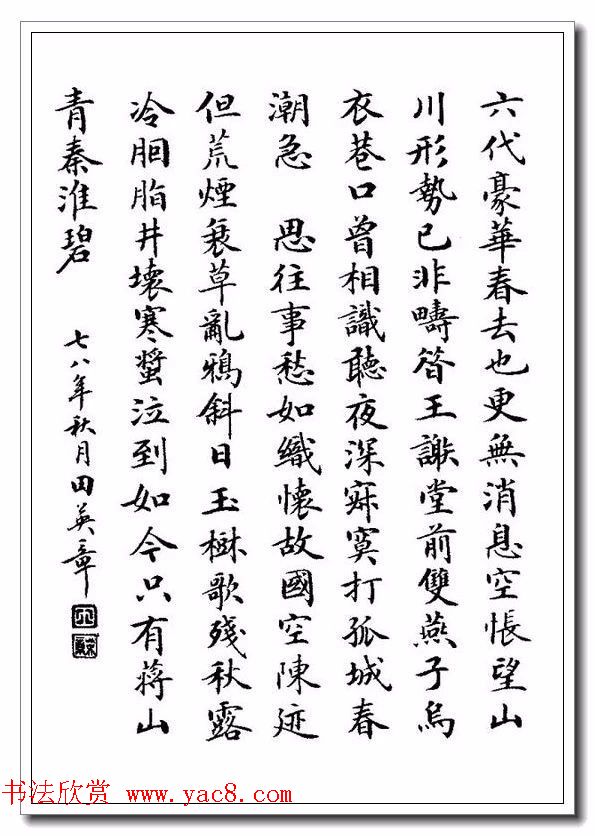 六代豪華春去也更無消息空悵望山
川形勢已非疇昝王謝堂前雙燕子烏
衣巷口曾相識聽夜深寂寞打孤城春
潮急　思往事愁如織懷故國空陳迹
但荒煙衰草亂鴉斜日玉樹歌殘秋露
冷胭脂井壞寒螿泣到如今只有蔣山
青秦淮碧
七八年秋月田英章
书法欣赏 www.yac8.com